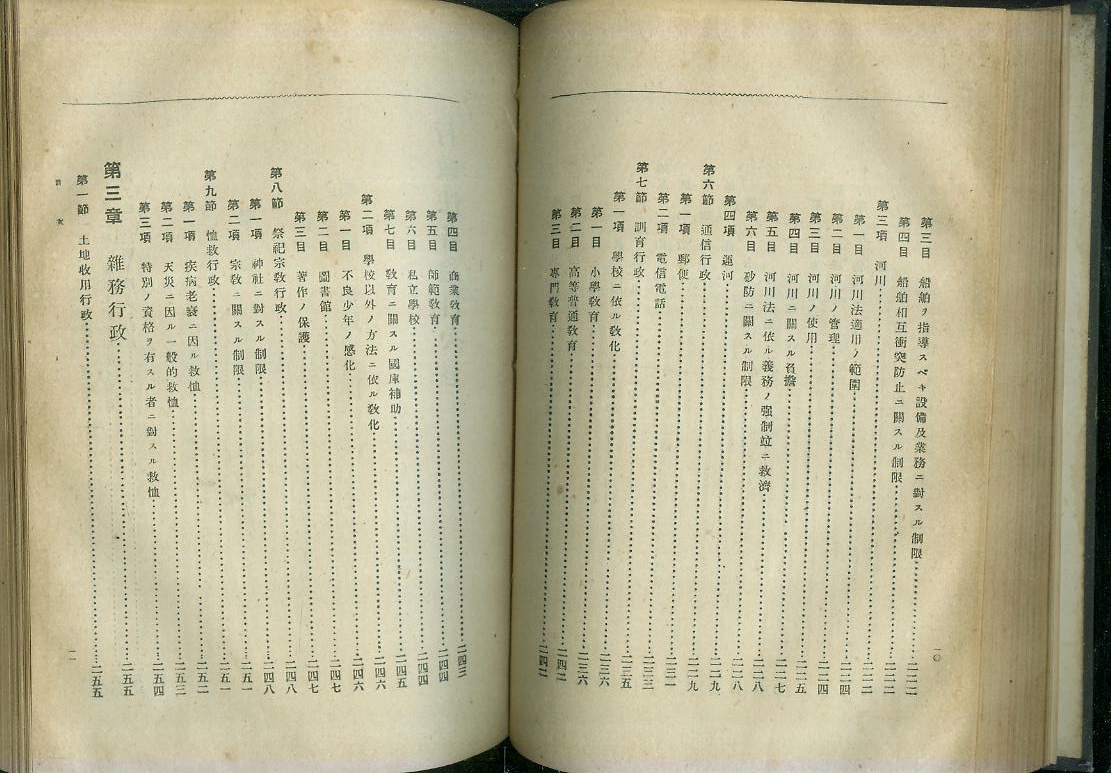 第三目　船舶ヲ指導スベキ設備及業務ニ對スル制限 二二二
第四目　船舶相互衝突防止ニ關スル制限 二二二
第三項　河川 二二二
第一目　河川法適用ノ範圍 二二四
第二目　河川ノ管理 二二四
第三目　河川ノ使用 二二五
第四目　河川ニ關スル負擔 二二七
第五目　河川法ニ依ル義務ノ强制竝ニ救濟 二二八
第六目　砂防ニ關スル制限 二二八
第四項　運河 二二九
第六節　通信行政 二二九
第一項　郵便 二二九
第二項　電信電話 二三三
第七節　訓育行政 二三五
第一項　學校ニ依ル敎化 二三六
第一目　小學敎育 二三六
第二目　高等普通敎育 二四二
第三目　專門敎育 二四二
一〇
第四目　商業敎育 二四三
第五目　師範敎育 二四四
第六目　私立學校 二四四
第七目　敎育ニ關スル國庫補助 二四五
第二項　學校以外ノ方法ニ依ル敎化 二四六
第一目　不良少年ノ感化 二四六
第二目　圖書館 二四七
第三目　著作ノ保護 二四七
第八節　祭祀宗敎行政 二四八
第一項　神社ニ對スル制限 二四八
第二項　宗敎ニ關スル制限 二五一
第九節　恤救行政 二五一
第一項　疾病老衰ニ因ル救恤 二五二
第二項　天災ニ因ル一般的救恤 二五三
第三項　特別ノ資格ヲ有スル者ニ對スル救恤 二五四
第三章　雜務行政 二五五
第一節　土地收用行政 二五五
目次
一一